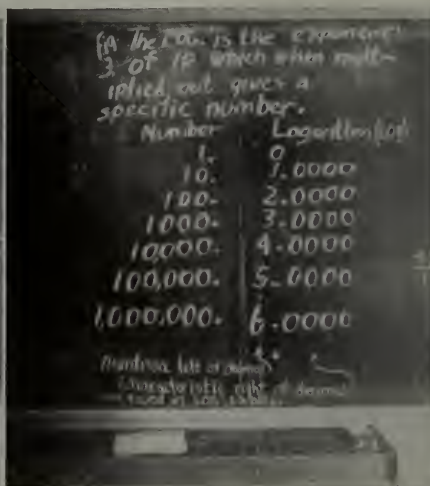 Fig The Log. is the exponent
3. of 10 which when mult-
iplied out gives a
specific number.
Number Logarithm (Log)
1. 0
10. 1.0000
100. 2.0000
1000. 3.0000
10000. 4.0000
100,000. 5.0000
1,000,000. 6.0000
Mantissa left of decimal
Characteristic right of decimal
found in